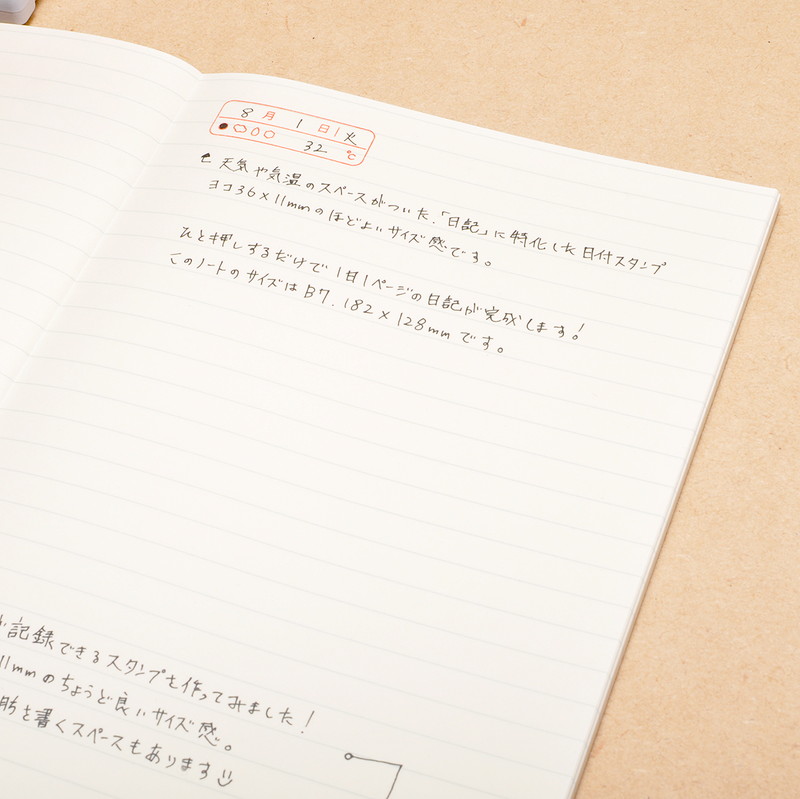 8月 1日 火
32 ℃
↑天気や気温のスペースがついた、「日記」に特化した日付スタンプ
ヨコ36×11mmのほどよいサイズ感です。
ひと押しするだけで1日1ページの日記が完成します!
このノートのサイズはB7. 182×128mmです。
記録できるスタンプを作ってみました!
11mmのちょうど良いサイズ感。
を書くスペースもあります